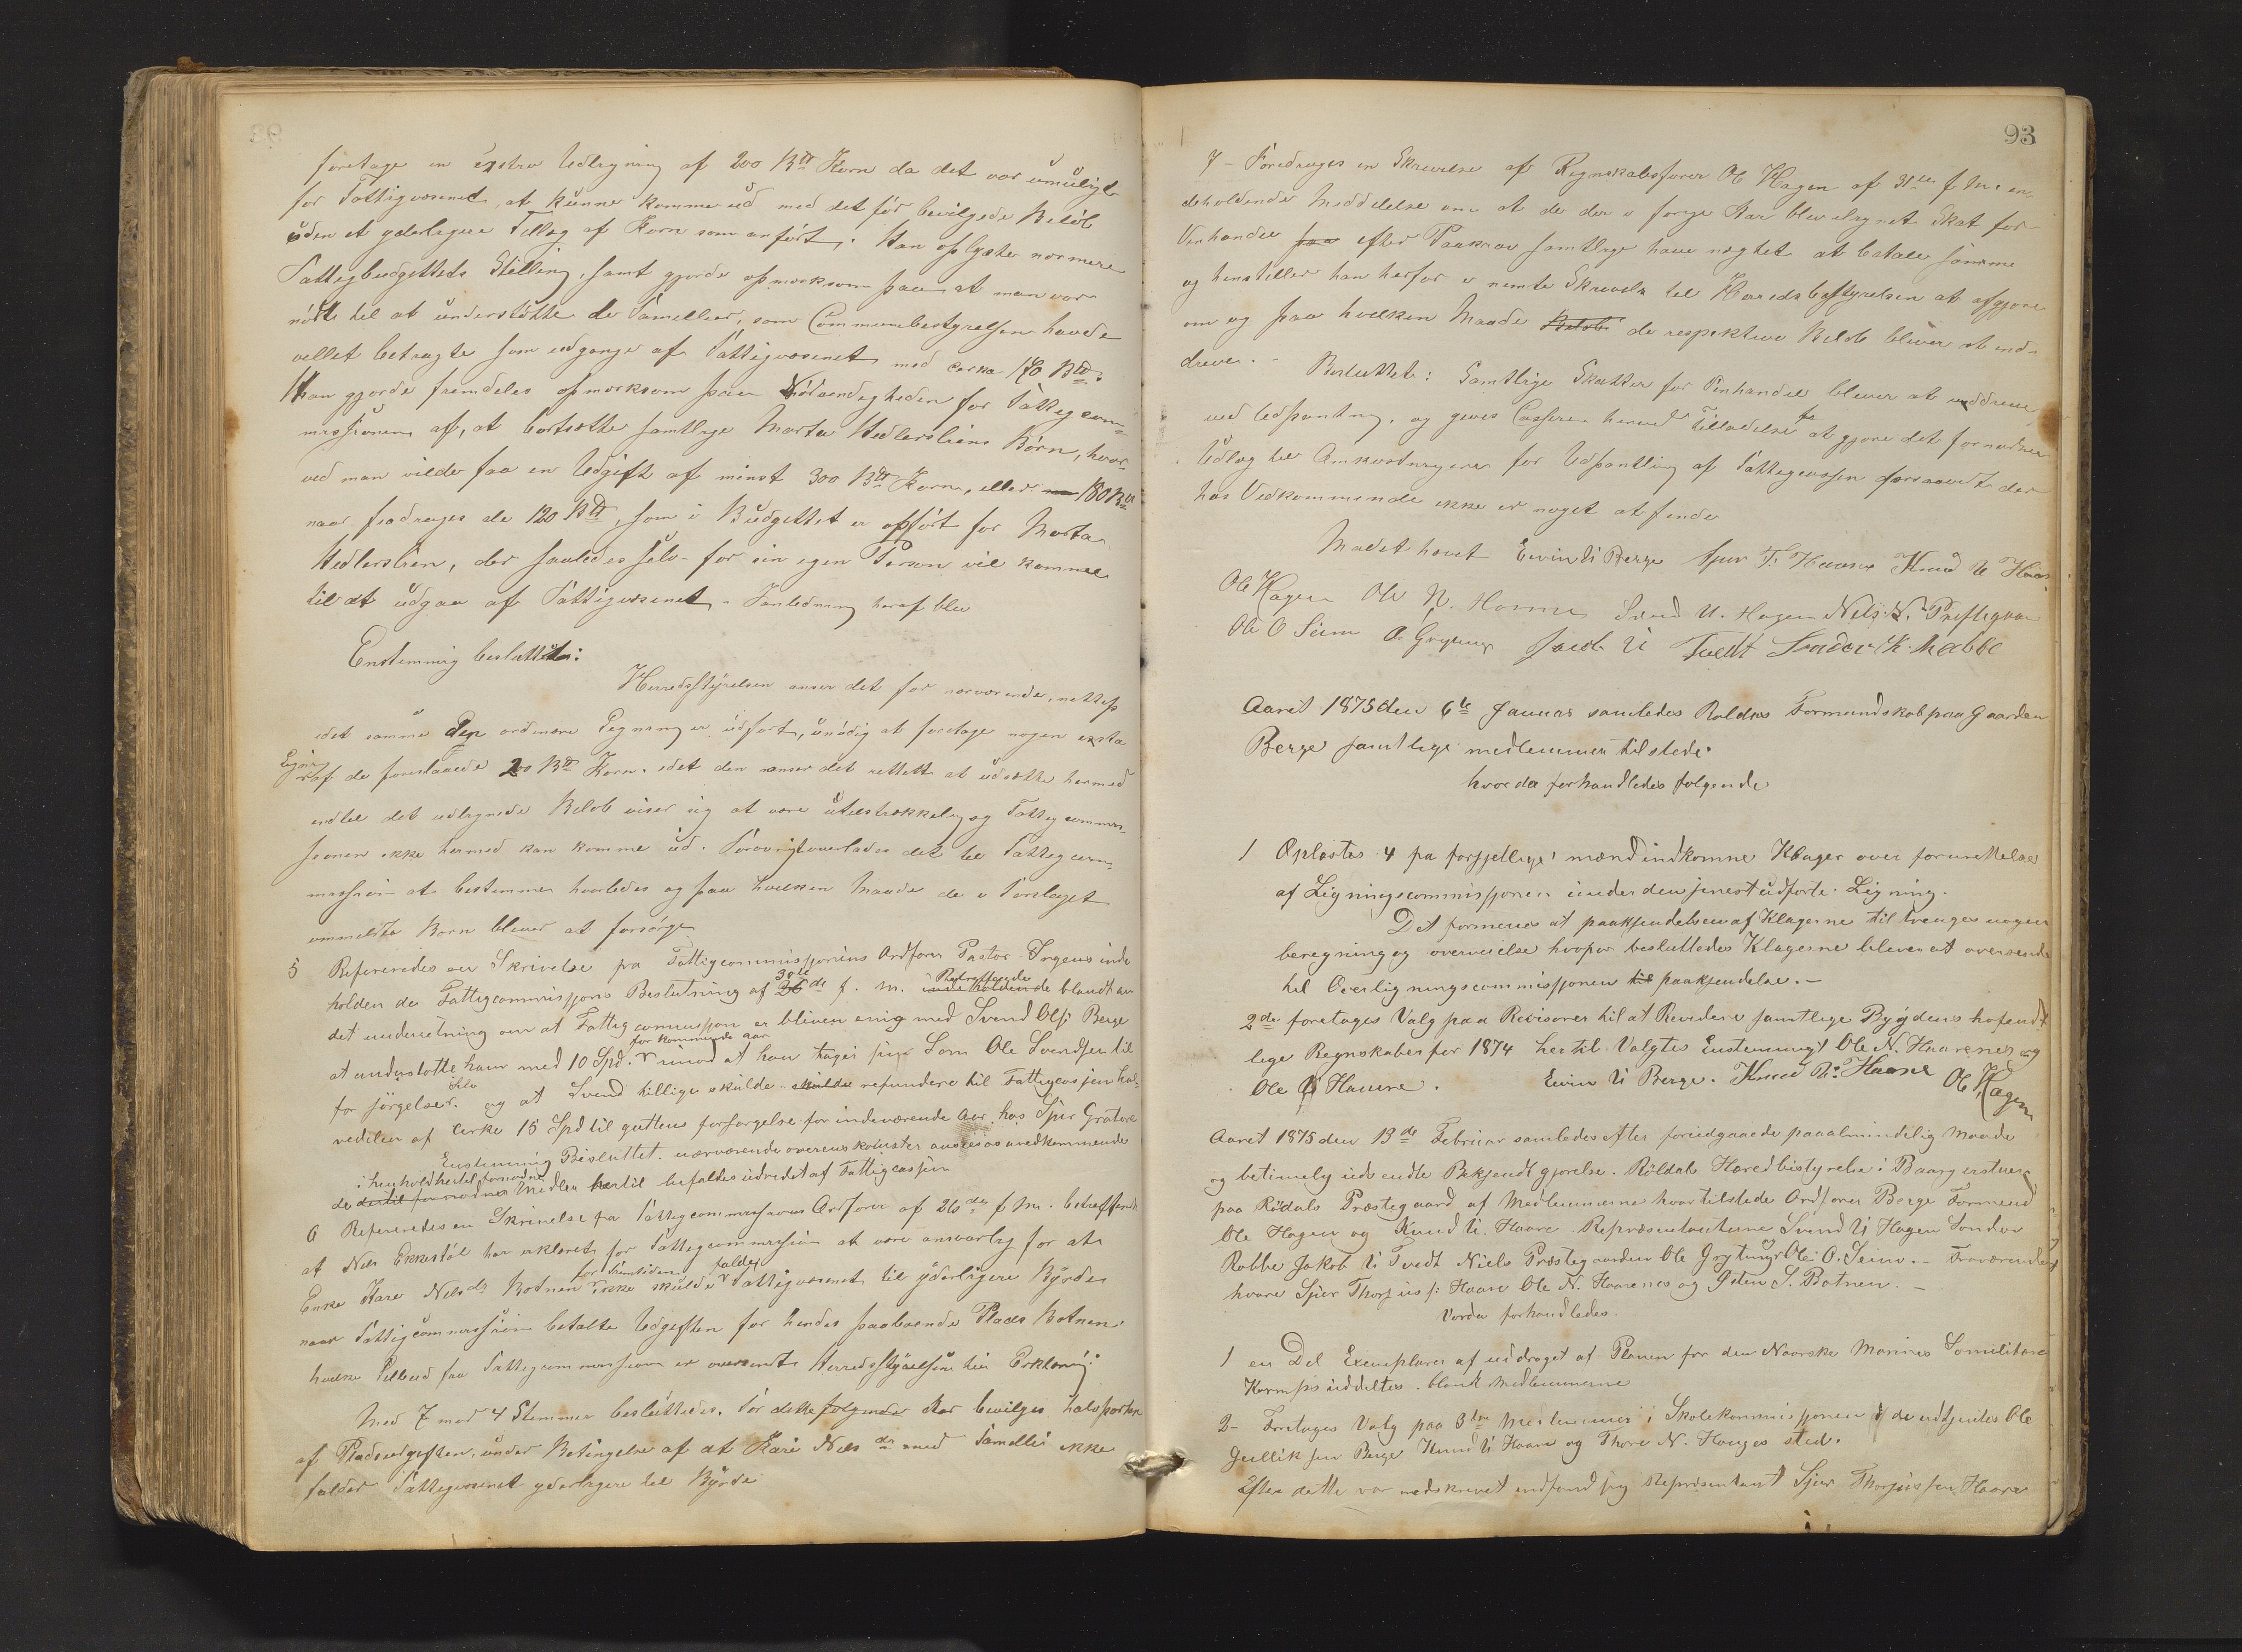 foretage en exstra Udligning af 200 Bd Korn da det var umuligt
for Fattigvæsenet, at kunne komme ud med det før bevilgede Beløb
uden et yderligere Tillæg af Korn som anført. Han oplyste nærmere
Fattigbudgettets Stilling, samt gjorde opmærksom paa at man var
nødt til at understøtte de Familier, som Communebestyrelsen havde
villet betragte som udgangne af Fattigvæsenet med cirka 170 Bd.
Han gjorde fremdeles opmærksom paa Nødvendigheden for Fattigcom-
missionen af, at bortsætte samtlige Marta Hedlersliens Børn, hvor-
ved man vilde faa en Udgift af minst 300 Bd Korn, eller 180 Bd
naar fradrages de 120 Bd, som i Budgettet er opført for Marta
Hedlerslien, der saaledes selv for sin egen Person vil komme
til at udgaa af Fattigvæsenet. - I Anledning heraf blev
Enstemmig besluttet:
Herredsstyrelsen anser det for nærværende, netop
idet samme den ordinære Ligning er udført, unødig at foretage nogen exstra
Ligning af de foreslaaede 200 Bd Korn, idet den anser det rettest at udsætte hermed
indtil det udlignede Beløb viser sig at være utilstrækkelig og Fattigcommis-
sionen ikke hermed kan komme ud. Forøvrigt overlades det til Fattigcom-
mission at bestemme hvorledes og paa hvilken Maade de i Forslaget
ommeldte Børn bliver at forsørge
5 Refereredes en Skrivelse fra Fattigcommissjonens Ordfører Pastor Irgens inde
holden de Fattigcommissjons Beslutning af 30te f. m. Betreffende blandt an
det underretning om at Fattigcommissjon er bliven enig med Svend Olsj Berge
at understøtte ham med 10 Spd. for kommende aar imod at han tager sin Søn Ole Svendsen til
forsørgelse selv og at Svend tillige skulde skulde refundere til Fattigcassjen hal-
vedelen af Cirke 15 Spd til guttens forsørgelse for indeværende Aar hos Sjur Grøtove
Enstemmig Besluttet. nærværende overenskomster ansees as uvedkommende
de i henhold hertil fornødne Midler hertil befaldes udredet af Fattigcassjen
6 Refereredes en Skrivelse fra Fattigcommissionens Ordfører af 26de f. m. betreffende
at Nils Ekkestøl har erklæret for Fattigcommission at være ansvarlig for at
Enke Kare Nilsdr Botnen for Fremtiden ikke skulde falde Fattigvæsenet til yderligere Byrde
naar Fattigcommission betalte Udgiften for hendes paaboende Plads Botnen.
hvilke Tilbud fra Fattigcommission er oversendt Herredsstyrelsen til Erklæring.
Med 7 mod 4 Stemmer besluttedes. For dette folgende Aar bevilges halvparten
af Pladsudgiften, under Betingelse af at Kari Nilsdr med Familie ikke
falder Fattigvæsenet yderligere til Byrde
93
7 - Foredrages en Skrivelse af Regnskabsfører Ole Hagen af 31te f. M. in-
deholdende Meddelelse om at de der i forrige Aar blev ilignet Skat for
Vinhandel paa efter Paakrav samtlige have nægtet at betale samme
og henstiller han herfor i nemte Skrivelse til Herredsbestyrelsen at afgjøre
om og paa hvilken Maade Beløb de respektive Beløb bliver at ind-
drive. -
Besluttet: Samtlige Skatter for Vinhandel bliver at inddrive
ved Udpantning, og gives Cassere herved Tilladelse te at gjøre det fornødne
Udlæg til Omkostningerne for Udpantling af Fattigcassen forsaavidt der
hos Vedkommende ikke er noget at finde
Mødet hævet Eivind U Berge Sjur T. Haare Knud U Haare
Ole Hagen Ole N. Horne Svend U. Hagen Nils N. Prestegaar
Ole O Seim O. Grytung Jacob U Tvedt Sondov K. Rabbe
Aaret 1875 den 6te Januar samledes Roldas Formandskab paa Gaarden
Berge samtlige medlemmer tilstede.
hvor da forhandledes folgende
1 Oplæstes 4 fra forsjellige mænd indkomne Klager over forurettelse
af Ligningscommissjonen under den jenest udførte Ligning.
Det formenes at paakjendelsen af Klagerne til trenges nogen
beregning og overveielse hvorfor besluttedes Klagerne bliver at oversende
til Overligningscommissjonen til paakjendelse. -
2de foretages Valg paa Revisorer til at Revidere samtlige Bygdens hofendt
lige Regnskaber for 1874 hertil Valgtes Enstemmigt Ole N. Haarenes og
Ole U Haarre. Eivin U Berge. Knud U. Haare Ole Hagen
Aaret 1875 den 13de Februar samledes efter forudgaaede paaalmindelig maade
og betimelig uds endte Bekjendtgjørelse. Röldals Heredbistyrelse i Baargerstuen
paa Röldals Præstegaard af Medlemmerne hvar tilstede Ordfører Berge Formend
Ole Hagen og Knud U. Haare Repræsentanterne Svend U Hagen Sondov
Rabbe Jakob U Tvedt Niels Præstegaarden Ole Grytung Ole O. Seim. - Fraværende
hvare Sjur Thorjusj: Haare Ole N. Haarenes og Østen S. Botnen. -
Vorda forhandledes.
1 en Del Exemplarer af uddraget af Planen for den Norske Marines Somilitære
Korps uddeltes. blant Medlemmerne
2 - Foretages Valg paa 3 tre Medlemmer i Skolekommissjonen i de udtjentes Ole
Gulliksen Berge Knud U Haare og Thore N. Hauges sted.
Efter dette var nedskrevet indfand sig Repræsentant Sjur Thorjussen Haare